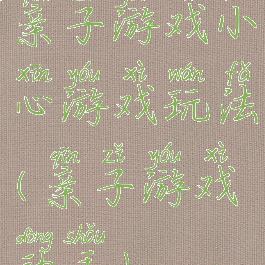 亲子游戏小
xīn yóu xì wán fǎ
心游戏玩法
qīn zǐ yóu xì
(亲子游戏
dòng shǒu
动手)